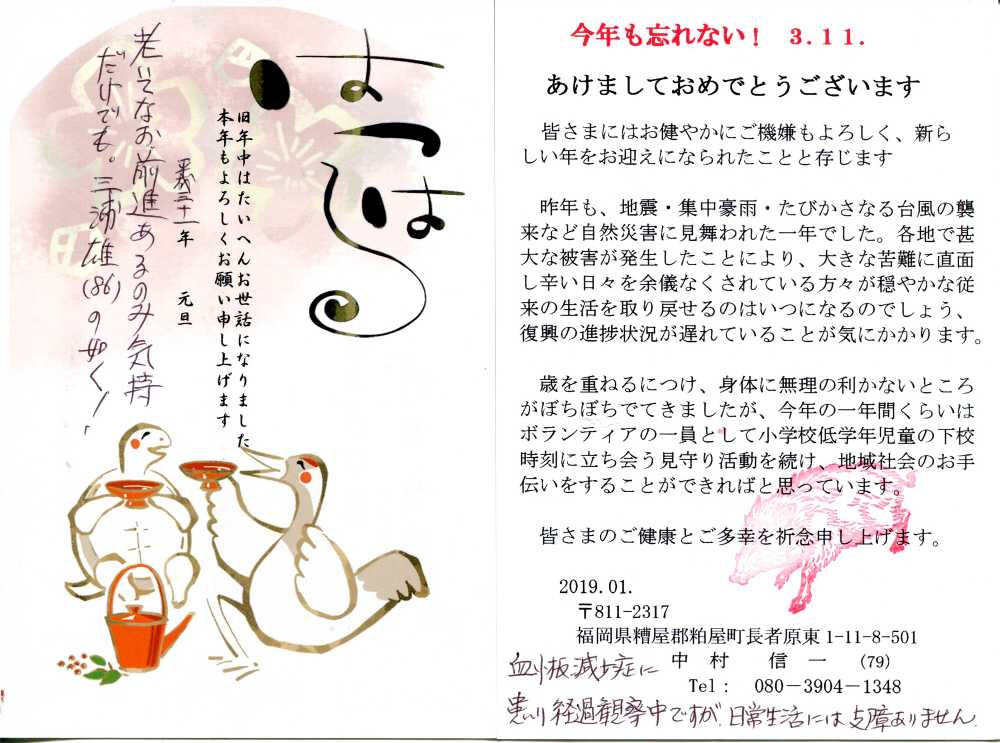 はつはる
旧年中はたいへんお世話になりました
本年もよろしくお願い申し上げます
平成三十一年 元旦
老いてなお、前進あるのみ気持
だけでも。三浦雄(86)の如く!
今年も忘れない! 3.11.
あけましておめでとうございます
皆さまにはお健やかにご機嫌もよろしく、新ら
しい年をお迎えになられたことと存じます
昨年も、地震・集中豪雨・たびかさなる台風の襲
来など自然災害に見舞われた一年でした。各地で甚
大な被害が発生したことにより、大きな苦難に直面
し辛い日々を余儀なくされている方々が穏やかな従
来の生活を取り戻せるのはいつになるのでしょう、
復興の進捗状況が遅れていることが気にかかります。
歳を重ねるにつけ、身体に無理の利かないところ
がぼちぼちでてきましたが、今年の一年間くらいは
ボランティアの一員として小学校低学年児童の下校
時刻に立ち会う見守り活動を続け、地域社会のお手
伝いをすることができればと思っています。
皆さまのご健康とご多幸を祈念申し上げます。
2019.01.
〒811-2317
福岡県糟屋郡粕屋町長者原東1-11-8-501
中村 信一 (79)
Tel: 080-3904-1348
血小板減少症に
患い経過観察中ですが、日常生活には支障ありません。